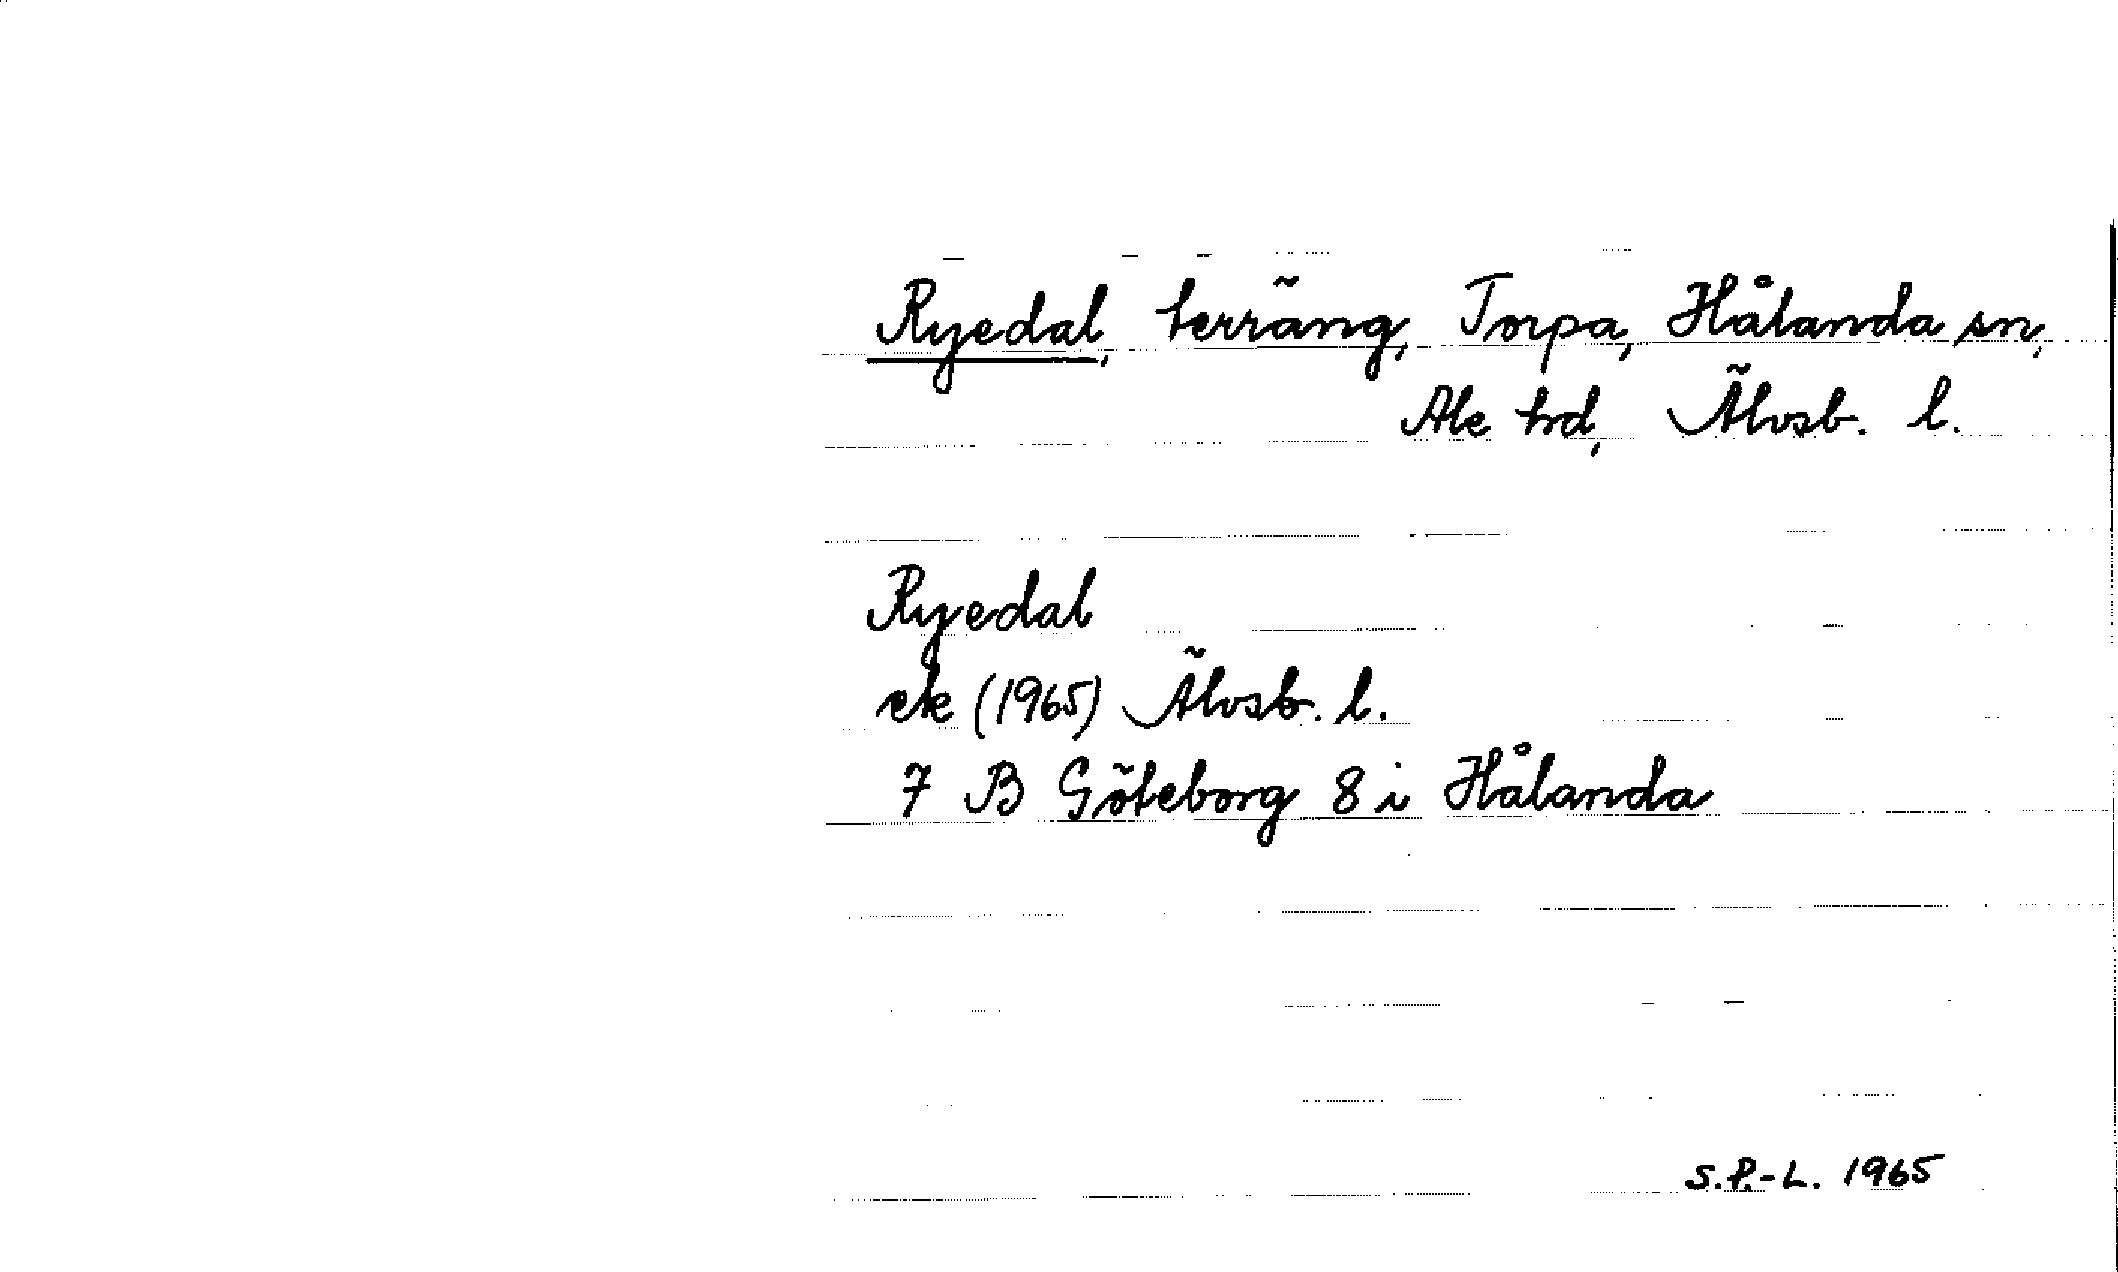 Ryedal, terräng, Torpa, Hålanda sn,
Ale hd, Älvsb. l.
Ryedal
ek (1965) Älvsb. l.
7 B Göteborg 8 i Hålanda
S.P.-L. 1965